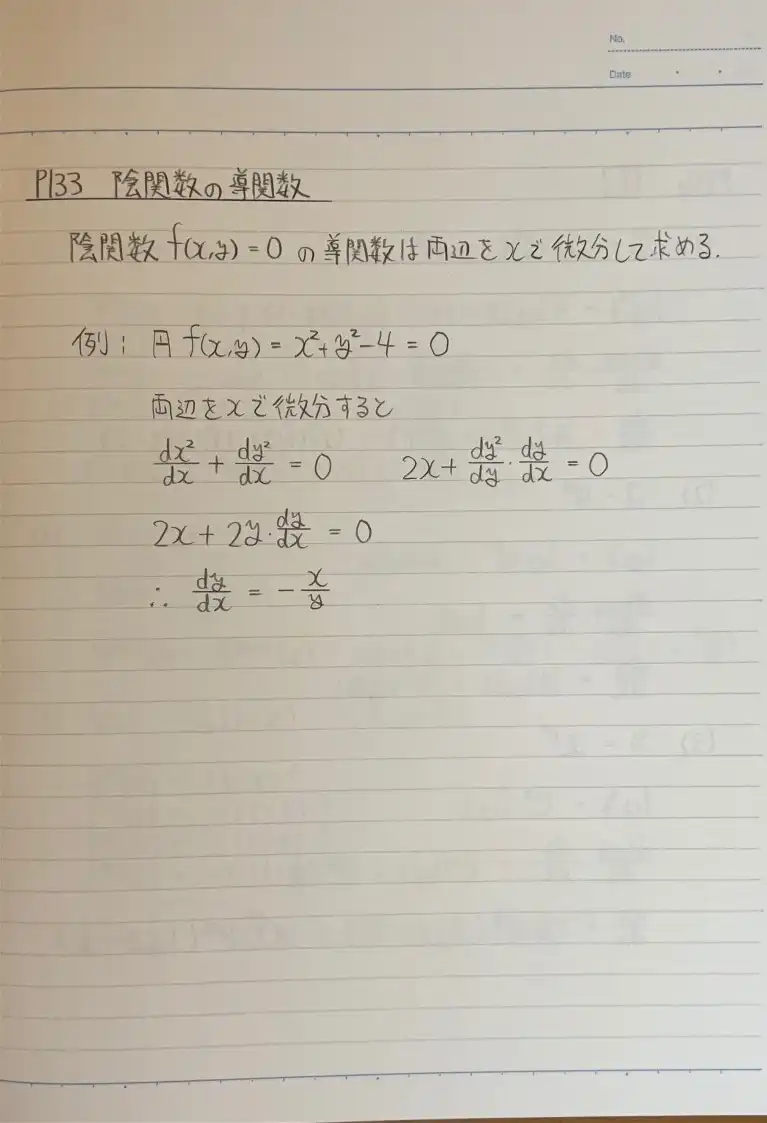 No.
Date
P133 陰関数の導関数
陰関数 f(x,y) = 0 の導関数は両辺をxで微分して求める.
例: 円 f(x,y) = x²+y²-4 = 0
両辺をxで微分すると
dx²/dx + dy²/dx = 0　　2x + dy²/dy · dy/dx = 0
2x + 2y · dy/dx = 0
∴ dy/dx = - x/y